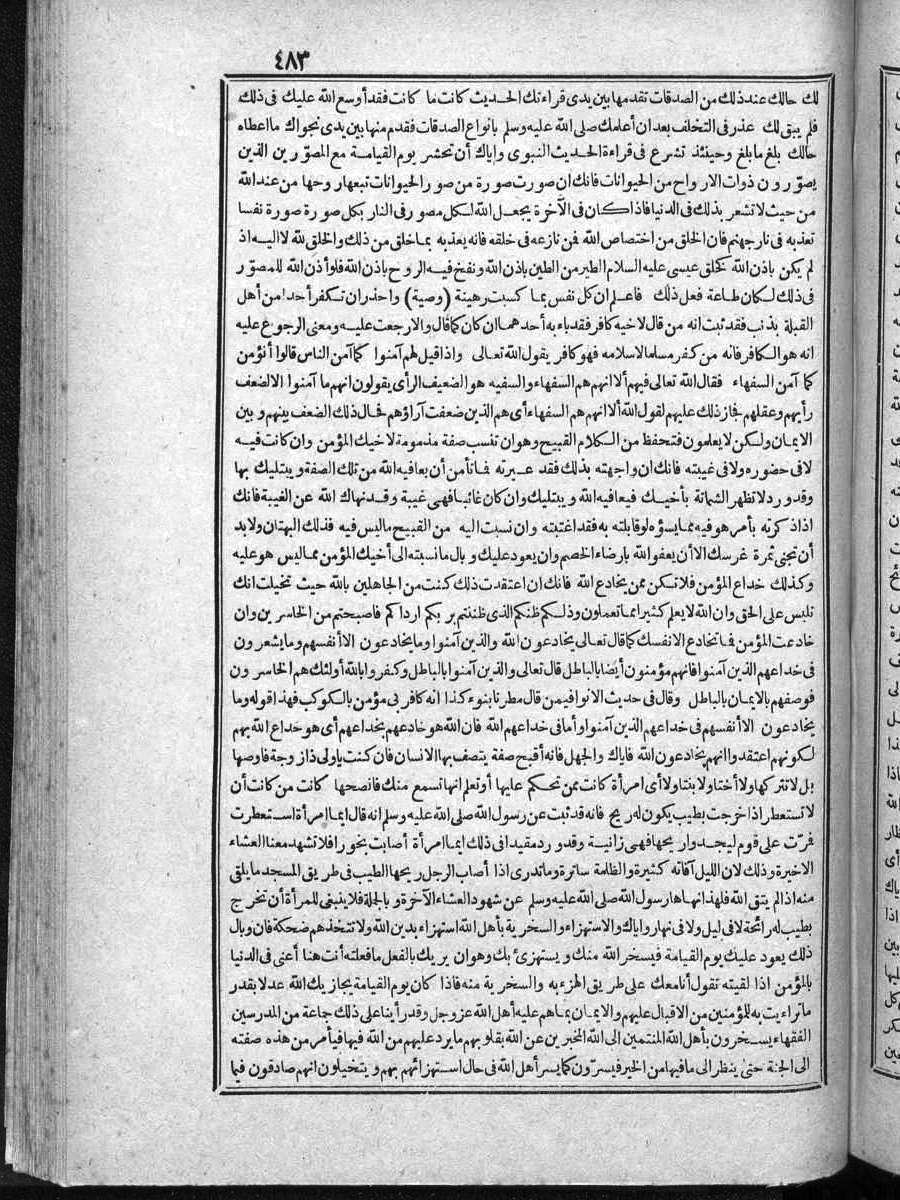 ٤٨٣
لك حالك عند ذلك من الصدقات تقدمها بين يدى قراءتك الحديث كانت ما كانت فقد أوسع الله عليك فى ذلك
فلم يبق لك عذر فى التخلف بعد ان أعلمك صلى الله عليه وسلم بانواع الصدقات فقدم منها بين يدى نجواك ما اعطاه
حالك بلغ ما بلغ وحينئذ تشرع فى قراءة الحديث النبوى واياك أن تحشر يوم القيامة مع المصوّرين الذين
يصوّرون ذوات الارواح من الحيوانات فانك ان صورت صورة من صور الحيوانات تبعهار وحها من عند الله
من حيث لا تشعر بذلك فى الدنيا فاذا كان فى الآخرة يجعل الله لكل مصور فى النار بكل صورة صورة نفسا
تعذبه فى نار جهنم فان الخلق من اختصاص الله فمن نازعه فى خلقه فانه يعذبه بما خلق من ذلك والخلق لله لا اليه اذ
لم يكن باذن الله كخلق عيسى عليه السلام الطير من الطين باذن الله ونفخ فيه الروح باذن الله فلو أذن الله للمصوّر
فى ذلك لكان طاعة فعل ذلك فاعلم ان كل نفس بما كسبت رهينة (وصية) واحذر ان تكفر أحدا من أهل
القبلة بذنب فقد ثبت انه من قال لاخيه كافر فقد باء به أحدهما ان كان كما قال والا رجعت عليه ومعنى الرجوع عليه
انه هو الكافر فانه من كفر مسلما لاسلامه فهو كافر يقول الله تعالى واذا قيل لهم آمنوا كما آمن الناس قالوا أنؤمن
كما آمن السفهاء فقال الله تعالى فيهم ألا انهم هم السفهاء والسفيه هو الضعيف الرأى يقولون انهم ما آمنوا الا لضعف
رأيهم وعقلهم فجاز ذلك عليهم لقول الله ألا انهم هم السفهاء أى هم الذين ضعفت آراؤهم فحال ذلك الضعف بينهم وبين
الايمان ولكن لا يعلمون فتحفظ من الكلام القبيح وهو ان تنسب صفة مذمومة لاخيك المؤمن وان كانت فيه
لا فى حضوره ولا فى غيبته فانك ان واجهته بذلك فقد عيرته فما تأمن أن يعافيه الله من تلك الصفة ويبتليك بها
وقد ورد لا تظهر الشماتة بأخيك فيعافيه الله ويبتليك وان كان غائبا فهى غيبة وقد نهاك الله عن الغيبة فانك
اذا ذكرته بأمر هو فيه مما يسؤه لو قابلته به فقد اغتبته وان نسبت اليه من القبيح ما ليس فيه فذلك البهتان ولا بد
أن تجنى ثمرة غرسك الا أن يعفو الله بارضاء الخصم وان يعود عليك وبال ما نسبته الى أخيك المؤمن مما ليس هو عليه
وكذلك خداع المؤمن فلا تكن ممن يخادع الله فانك ان اعتقدت ذلك كنت من الجاهلين بالله حيث تخيلت انك
تلبس على الحق وان الله لا يعلم كثيرا مما تعملون وذلكم ظنكم الذى ظننتم بربكم ارداكم فاصبحتم من الخاسرين وان
خادعت المؤمن فما تخادع الا نفسك كما قال تعالى يخادعون الله والذين آمنوا وما يخادعون الا أنفسهم وما يشعرون
فى خداعهم الذين آمنوا فانهم مؤمنون أيضا بالباطل قال تعالى والذين آمنوا بالباطل وكفروا بالله أولئك هم الخاسرون
فوصفهم بالايمان بالباطل وقال فى حديث الانواء فيمن قال مطرنا بنوء كذا انه كافر بى مؤمن بالكوكب فهذا قوله وما
يخادعون الا أنفسهم فى خداعهم الذين آمنوا وأما فى خداعهم الله فان الله هو خادعهم بخداعهم أى هو خداع الله بهم
لكونهم اعتقدوا انهم يخادعون الله فاياك والجهل فانه أقبح صفة يتصف بها الانسان فان كنت ياولى ذا زوجة فاوصها
بل لا تتركها ولا أختا ولا بنتا ولا أى امرأة كانت ممن تحكم عليها أو تعلم انها تسمع منك فانصحها كانت من كانت أن
لا تستعطر اذا خرجت بطيب يكون له ريح فانه قد ثبت عن رسول الله صلى الله عليه وسلم انه قال ايما امرأة استعطرت
فمرّت على قوم ليجدوا ريحها فهى زانية وقد ورد مقيدا فى ذلك ايما امرأة أصابت بخورا فلا تشهد معنا العشاء
الاخيرة وذلك لان الليل آفاته كثيرة والظلمة ساترة وما تدرى اذا أصاب الرجل ريحها الطيب فى طريق المسجد ما يلقى
منه اذا لم يتق الله فلهذا نهاها رسول الله صلى الله عليه وسلم عن شهود العشاء الآخرة وبالجملة فلا ينبغى للمرأة أن تخرج
بطيب له رائحة لا فى ليل ولا فى نهار واياك والاستهزاء والسخرية بأهل الله استهزاء بدين الله ولا تتخذهم ضحكة فان وبال
ذلك يعود عليك يوم القيامة فيسخر الله منك ويستهزئ بك وهو ان يريك بالفعل ما فعلته أنت هنا أعنى فى الدنيا
بالمؤمن اذا لقيته تقول أنا معك على طريق الهزء به والسخرية منه فاذا كان يوم القيامة يجازيك الله عدلا بقدر
ما تراءيت به للمؤمنين من الاقبال عليهم والايمان بما هم عليه أهل الله عز وجل وقد رأينا على ذلك جماعة من المدرسين
الفقهاء يسخرون بأهل الله المنتمين الى الله المخبرين عن الله بقلوبهم ما يرد عليهم من الله فيها فيأمر من هذه صفته
الى الجنة حتى ينظر الى ما فيها من الخير فيسرّون كما يسر أهل الله فى حال استهزائهم بهم ويتخيلون انهم صادقون فيما